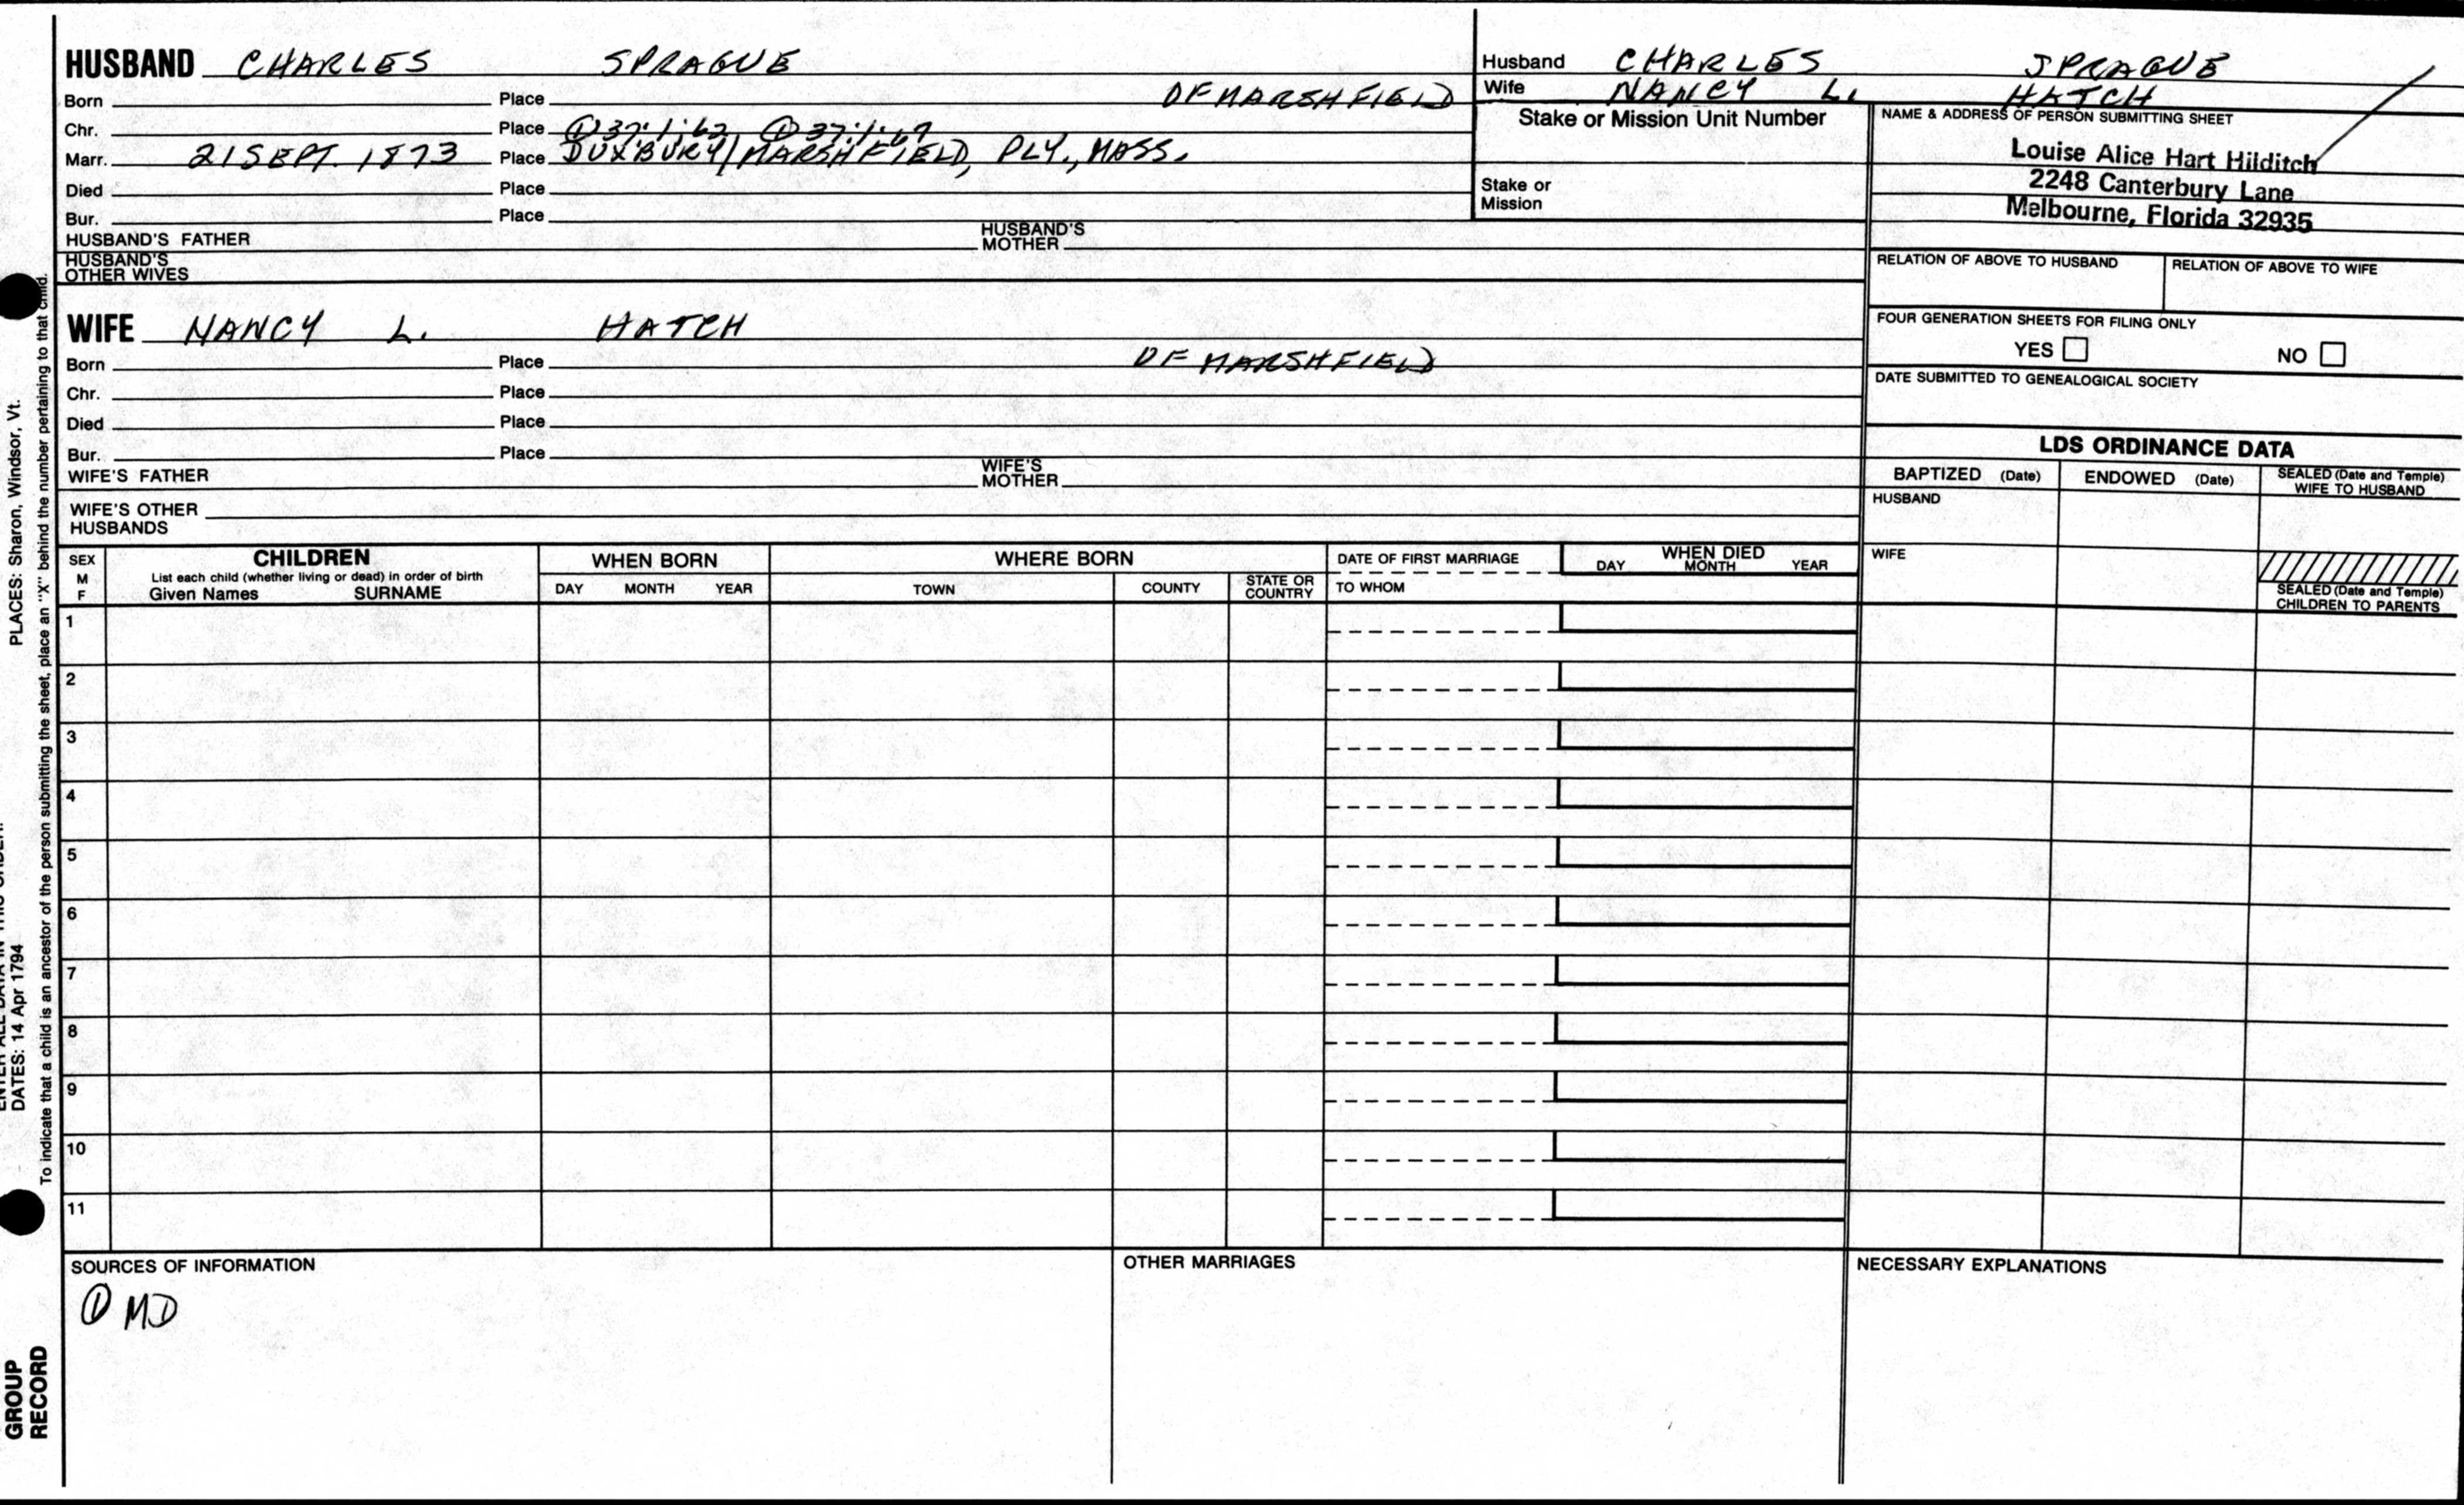 HUSBAND CHARLES SPRAGUE
Born Place OF MARSHFIELD
Chr. Place ① 37:1:62, ① 37:1:67
Marr. 21 SEPT. 1873 Place DUXBURY/MARSHFIELD, PLY., MASS.
Died Place
Bur. Place
HUSBAND'S FATHER HUSBAND'S MOTHER
HUSBAND'S OTHER WIVES
Husband CHARLES SPRAGUE
Wife NANCY L. HATCH
Stake or Mission Unit Number
Stake or
Mission
NAME & ADDRESS OF PERSON SUBMITTING SHEET
Louise Alice Hart Hilditch
2248 Canterbury Lane
Melbourne, Florida 32935
RELATION OF ABOVE TO HUSBAND RELATION OF ABOVE TO WIFE
FOUR GENERATION SHEETS FOR FILING ONLY
YES NO
DATE SUBMITTED TO GENEALOGICAL SOCIETY
WIFE NANCY L. HATCH
Born Place OF MARSHFIELD
Chr. Place
Died Place
Bur. Place
WIFE'S FATHER WIFE'S MOTHER
WIFE'S OTHER
HUSBANDS
LDS ORDINANCE DATA
BAPTIZED (Date) ENDOWED (Date) SEALED (Date and Temple) WIFE TO HUSBAND
HUSBAND
WIFE
SEALED (Date and Temple)
CHILDREN TO PARENTS
SEX
M
F
CHILDREN
List each child (whether living or dead) in order of birth
Given Names SURNAME
WHEN BORN
DAY MONTH YEAR
WHERE BORN
TOWN COUNTY STATE OR COUNTRY
DATE OF FIRST MARRIAGE
TO WHOM
WHEN DIED
DAY MONTH YEAR
1
2
3
4
5
6
7
8
9
10
11
SOURCES OF INFORMATION
① MD
OTHER MARRIAGES
NECESSARY EXPLANATIONS
PLACES: Sharon, Windsor, Vt.
DATES: 14 Apr 1794
To indicate that a child is an ancestor of the person submitting the sheet, place an "X" behind the number pertaining to that child.
GROUP
RECORD